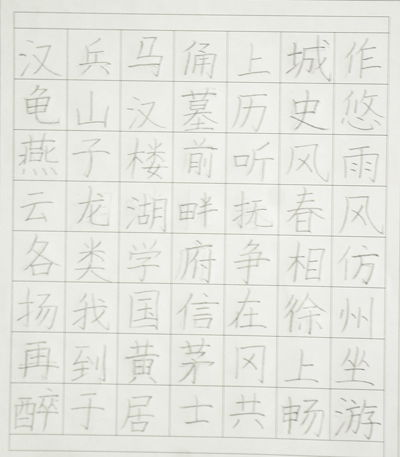 汉兵马俑上城作
龟山汉墓历史悠
燕子楼前听风雨
云龙湖畔抚春风
各类学府争相仿
扬我国信在徐州
再到黄茅冈上坐
醉于居士共畅游